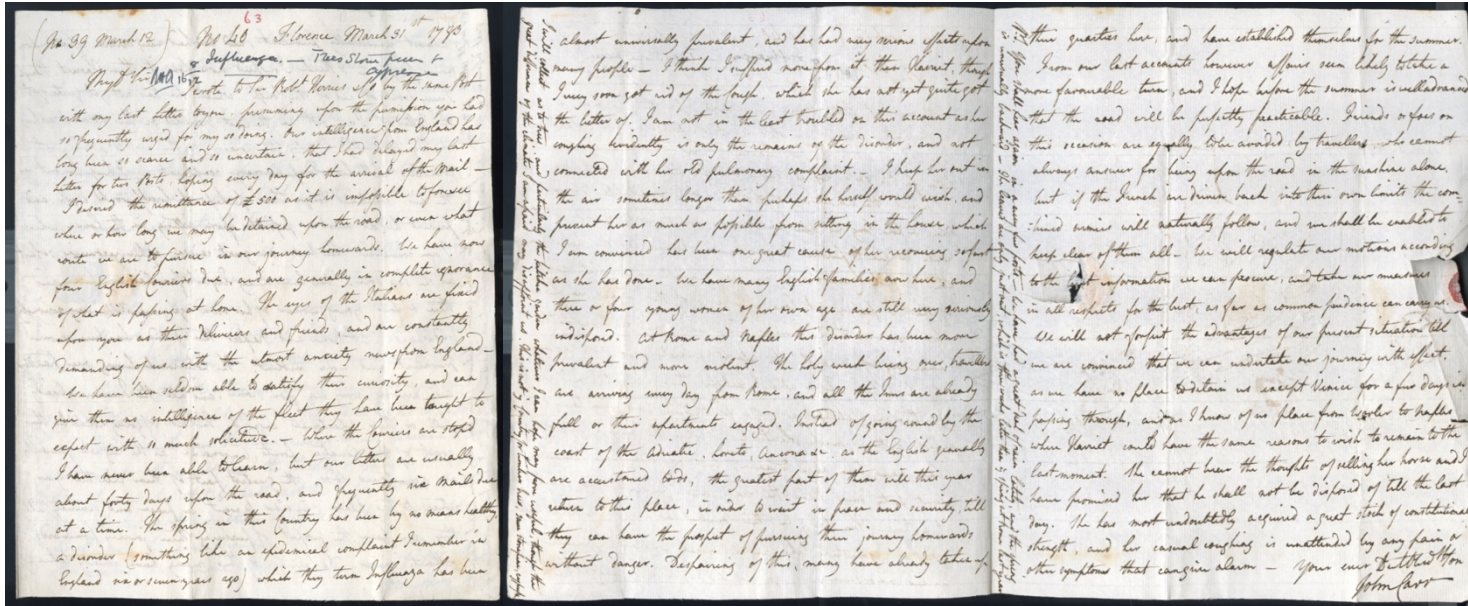 63
(No 39 March 12) No 40 Florence March 31st 1793
Influenza. — Trees Slow
I wrote to Sir Robt Herries & Co by the same Post
with my last letter to you, presuming upon the permission you had
so frequently urged for my so doing. Our intelligence from England has
long been so scarce and so uncertain, that I had delayed my last
letter for two Posts, hoping every day for the arrival of the Mail —
I desired the remittance of £500 as it is impossible to foresee
where or how long we may be detained upon the road, or even what
route we are to pursue in our journey homewards. We have now
four English Couriers due, and are generally in complete ignorance
of what is passing at home. The eyes of the Italians are fixed
upon you as their deliverers and friends, and are constantly
demanding of us with the utmost anxiety news from England —
We have been seldom able to satisfy their curiosity, and can
give them no intelligence of the fleet they have been taught to
expect with so much solicitude. — Where the Couriers are stoped
I have never been able to learn, but our letters are usually
about forty days upon the road, and frequently six Mails due
at a time. The spring in this Country has been by no means healthy,
a disorder (something like an epidemical complaint I remember in
England six or seven years ago) which they term Influenza has been
almost universally prevalent, and has had very serious effects upon
many people — I think I suffered more from it than Harriet, though
I very soon got rid of the Cough, which she has not yet quite got
the better of. I am not in the least troubled on this account as her
coughing evidently is only the remains of the disorder, and not
connected with her old pulmonary complaint. — I keep her out in
the air sometimes longer than perhaps she herself would wish, and
prevent her as much as possible from sitting in the house, which
I am convinced has been one great cause of her recovering so fast
as she has done — We have many English families now here, and
three or four young women of her own age are still very seriously
indisposed. At Rome and Naples this disorder has been more
prevalent and more violent. The holy week being over, travellers
are arriving every day from Rome, and all the Inns are already
full or their apartments engaged. Instead of going round by the
coast of the Adriatic, Loreto, Ancona &c. as the English generally
are accustomed to do, the greatest part of them will this year
return to this place, in order to wait in peace and security, till
they can have the prospect of pursuing their journey homewards
without danger. Despairing of this, many have already taken up
their quarters here, and have established themselves for the summer.
From our last accounts however affairs seem likely to take a
more favourable turn, and I hope before the summer is well advanced
that the road will be perfectly practicable. Friends or foes on
this occasion are equally to be avoided by travellers who cannot
always answer for being upon the road in the sunshine alone,
but if the French are driven back into their own limits the com-
bined armies will naturally follow, and we shall be enabled to
keep clear of them all — We will regulate our motions according
to the information we can procure, and take our measures
in all respects for the best, as far as common prudence can carry us.
We will not forfeit the advantages of our present situation till
we are convinced that we can undertake our journey with effect,
as we have no place to detain us except Venice for a few days in
passing through, and as I know of no place from to Naples
where Harriet could have the same reasons to wish to remain to the
last moment. She cannot bear the thoughts of selling her horse and I
have promised her that he shall not be disposed of till the last
day. She has most undoubtedly acquired a great stock of constitutional
strength, and her casual coughing is unattended by any pain or
other symptoms that can give alarm — Your ever
John Carr